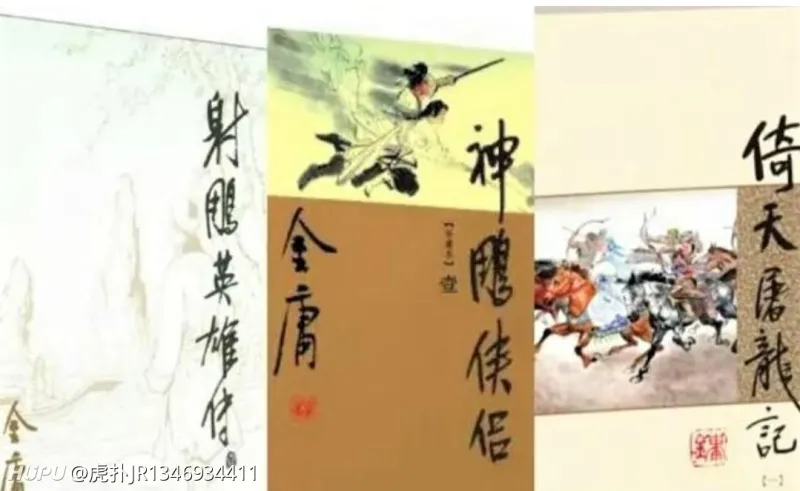 射鵰英雄传
金庸
神鵰侠侣
壹
金庸
倚天屠龍記
【一】
HUPU @虎扑JR1346934411